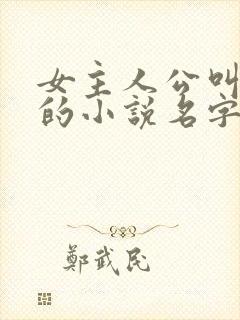 女主人公叫
的小說名字
鄭武民